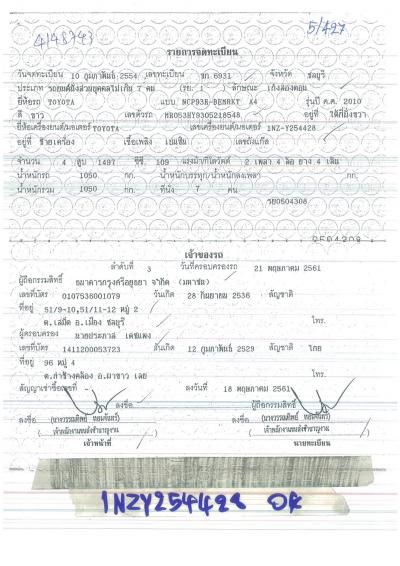 4148743
5/427
รายการจดทะเบียน
วันจดทะเบียน 10 กุมภาพันธ์ 2554 เลขทะเบียน ขก 6931 จังหวัด ชลบุรี
ประเภท รถยนต์นั่งส่วนบุคคลไม่เกิน 7 คน (รย. 1 ) ลักษณะ เก๋งสองตอน
ยี่ห้อรถ TOYOTA แบบ NCP93R-BEMRKT A4 รุ่นปี ค.ศ. 2010
สี ขาว เลขตัวรถ MR053HY9305218548 อยู่ที่ ใต้ที่นั่งขวา
ยี่ห้อเครื่องยนต์/มอเตอร์ TOYOTA เลขเครื่องยนต์/มอเตอร์ 1NZ-Y254428
อยู่ที่ ซ้ายเครื่อง เชื้อเพลิง เบนซิน เลขถังแก๊ส
จำนวน 4 สูบ 1497 ซีซี 109 แรงม้า/กิโลวัตต์ 2 เพลา 4 ล้อ ยาง 4 เส้น
น้ำหนักรถ 1050 กก. น้ำหนักบรรทุก/น้ำหนักลงเพลา กก.
น้ำหนักรวม 1050 กก. ที่นั่ง 7 คน
เจ้าของรถ
ลำดับที่ 3 วันที่ครอบครองรถ 21 พฤษภาคม 2561
ผู้ถือกรรมสิทธิ์ ธนาคารกรุงศรีอยุธยา จำกัด (มหาชน)
เลขที่บัตร 0107536001079 วันเกิด 28 กันยายน 2536 สัญชาติ
ที่อยู่ 51/9-10,51/11-12 หมู่ 2
ต.เสม็ด อ.เมือง ชลบุรี โทร.
ผู้ครอบครอง นายประภาส เดชแพง
เลขที่บัตร 1411200053723 วันเกิด 12 กุมภาพันธ์ 2529 สัญชาติ ไทย
ที่อยู่ 96 หมู่ 4
อ.ผาขาว เลย โทร.
สัญญาเช่าซื้อเลขที่ - ลงวันที่ 18 พฤษภาคม 2561
ลงชื่อ ผู้ถือกรรมสิทธิ์
ลงชื่อ ลงชื่อ
เจ้าพนักงานขนส่งชำนาญงาน เจ้าพนักงานขนส่งชำนาญงาน
เจ้าหน้าที่ นายทะเบียน
1NZY254428 OK